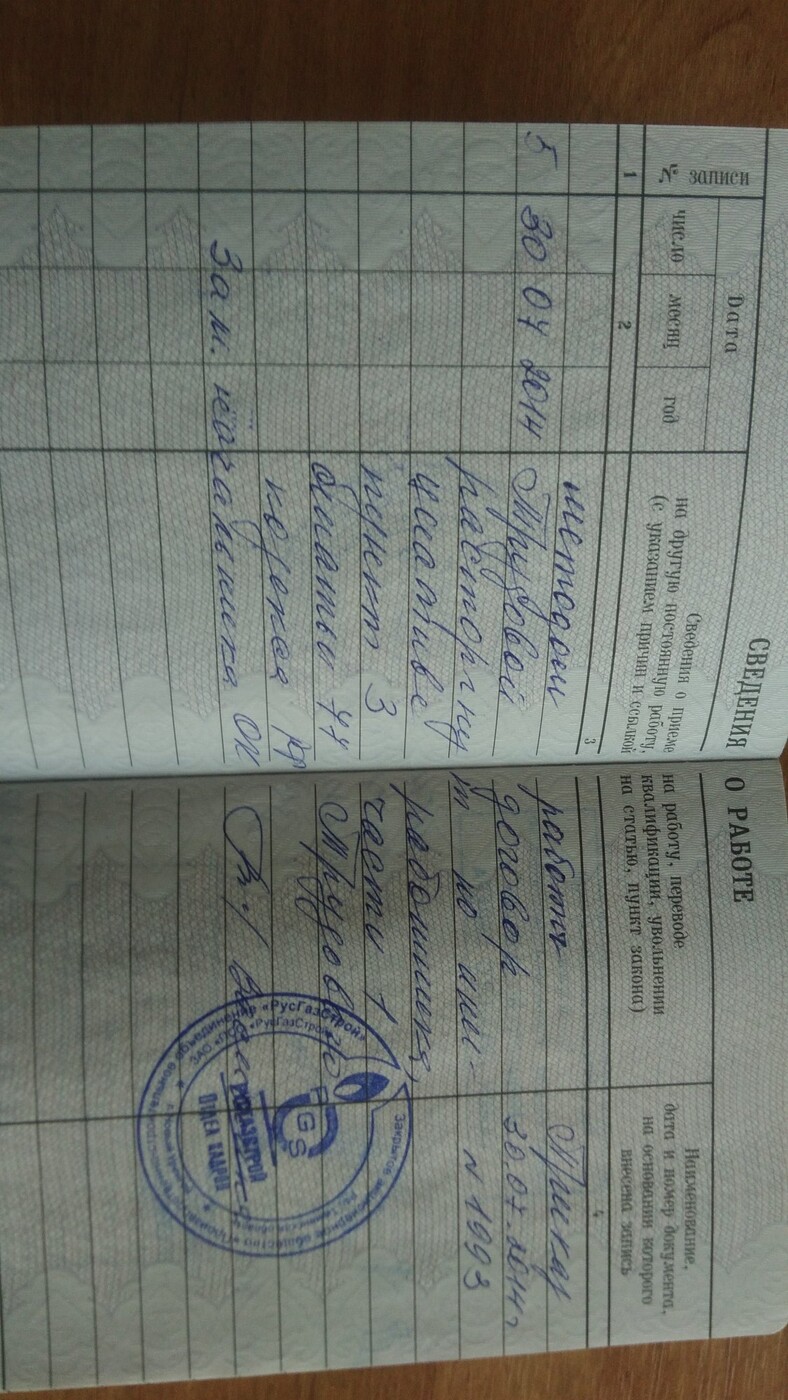 СВЕДЕНИЯ О РАБОТЕ
№ записи
Дата
число
месяц
год
Сведения о приеме на работу, переводе
на другую постоянную работу, квалификации, увольнении
(с указанием причин и ссылкой на статью, пункт закона)
Наименование,
дата и номер документа,
на основании которого
внесена запись
1
2
3
4
методом работы
5 30 07 2014 Трудовой договор Приказ
расторгнут по ини- 30.07.2014г
циативе работника, N 1993
пункт 3 части 1
статьи 77 Трудового
кодекса РФ
Зам. начальника ОК
Закрытое акционерное общество
объединение «РусГазСтрой»
ЗАО «РусГазСтрой»
RGS
РУСГАЗСТРОЙ
ОТДЕЛ КАДРОВ